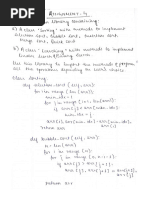 Assignment - 4
library containing:
a) A class "Sorting" with methods to implement
selection sort, bubble sort, insertion sort,
merge sort, quick sort
b) A class "Searching" with methods to implement
linear search, binary search
Use the library to
the operations depending on user's choice
class Sorting:
def selection_sort (self, arr):
for i in range (len(arr)):
min_idx = i
for j in range (i+1, len(arr)):
if arr[j] < arr[min_idx]:
min_idx = j
arr[i], arr[min_idx] = arr[min_idx], arr[i]
return arr
def bubble_sort (self, arr):
n = len(arr)
for i in range (n):
for j in range (0, n-i-1):
if arr[j] > arr[j+1]:
arr[j], arr[j+1] =
arr[j+1], arr[j]
return arr